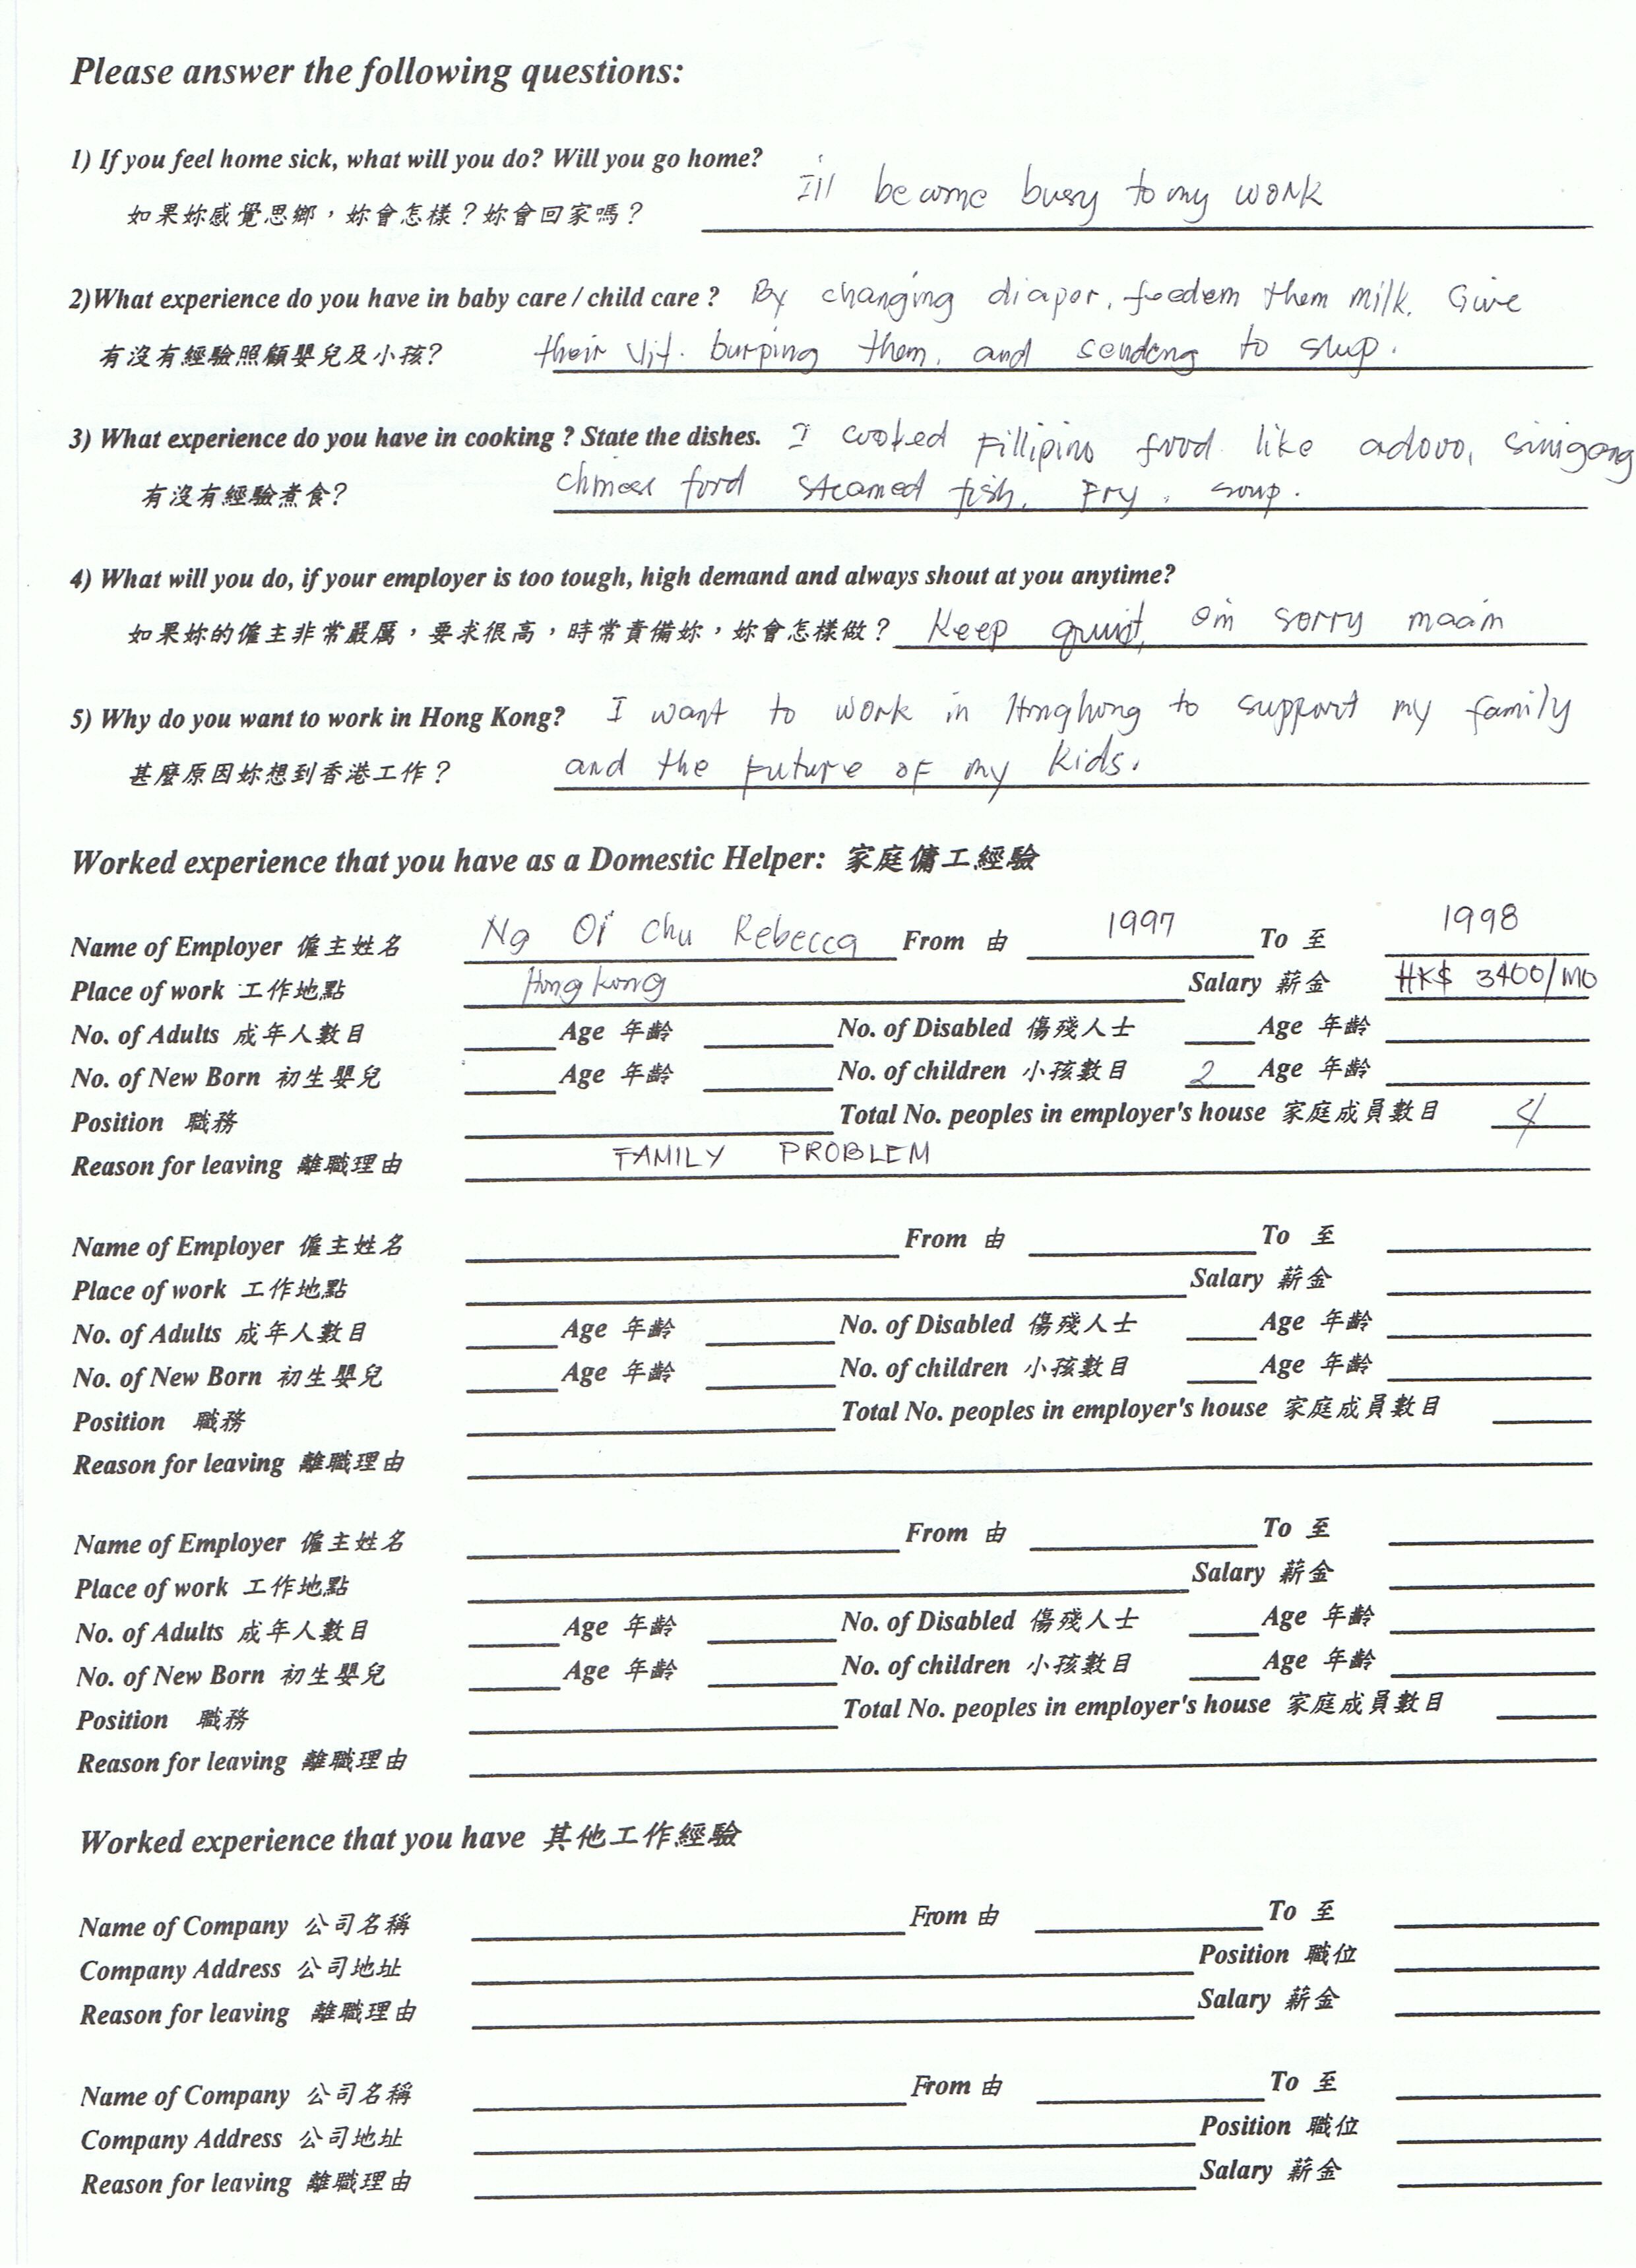 Please answer the following questions:
1) If you feel home sick, what will you do? Will you go home?
I'll become busy to my work
如果妳感覺思鄉，妳會怎樣？妳會回家嗎？
2)What experience do you have in baby care / child care ? By changing diaper, feedem them milk. Give
有沒有經驗照顧嬰兒及小孩? their Vit. burping them, and sending to sleep.
3) What experience do you have in cooking ? State the dishes. I cooked Fillipino food like adovo, sinigang
有沒有經驗煮食? chinese food steamed fish, Fry, soup.
4) What will you do, if your employer is too tough, high demand and always shout at you anytime?
如果妳的僱主非常嚴厲，要求很高，時常責備妳，妳會怎樣做？ Keep quiet, sorry maam
5) Why do you want to work in Hong Kong? I want to work in Hongkong to support my family
甚麼原因妳想到香港工作？ and the future of my kids.
Worked experience that you have as a Domestic Helper: 家庭傭工經驗
Name of Employer 僱主姓名 Ng Oi Chu Rebecca From 由 1997 To 至 1998
Place of work 工作地點 Hong Kong Salary 薪金 HK$ 3400/mo
No. of Adults 成年人數目 Age 年齡 No. of Disabled 傷殘人士 Age 年齡
No. of New Born 初生嬰兒 Age 年齡 No. of children 小孩數目 2 Age 年齡
Position 職務 Total No. peoples in employer's house 家庭成員數目 4
Reason for leaving 離職理由 FAMILY PROBLEM
Name of Employer 僱主姓名 From 由 To 至
Place of work 工作地點 Salary 薪金
No. of Adults 成年人數目 Age 年齡 No. of Disabled 傷殘人士 Age 年齡
No. of New Born 初生嬰兒 Age 年齡 No. of children 小孩數目 Age 年齡
Position 職務 Total No. peoples in employer's house 家庭成員數目
Reason for leaving 離職理由
Name of Employer 僱主姓名 From 由 To 至
Place of work 工作地點 Salary 薪金
No. of Adults 成年人數目 Age 年齡 No. of Disabled 傷殘人士 Age 年齡
No. of New Born 初生嬰兒 Age 年齡 No. of children 小孩數目 Age 年齡
Position 職務 Total No. peoples in employer's house 家庭成員數目
Reason for leaving 離職理由
Worked experience that you have 其他工作經驗
Name of Company 公司名稱 From 由 To 至
Company Address 公司地址 Position 職位
Reason for leaving 離職理由 Salary 薪金
Name of Company 公司名稱 From 由 To 至
Company Address 公司地址 Position 職位
Reason for leaving 離職理由 Salary 薪金